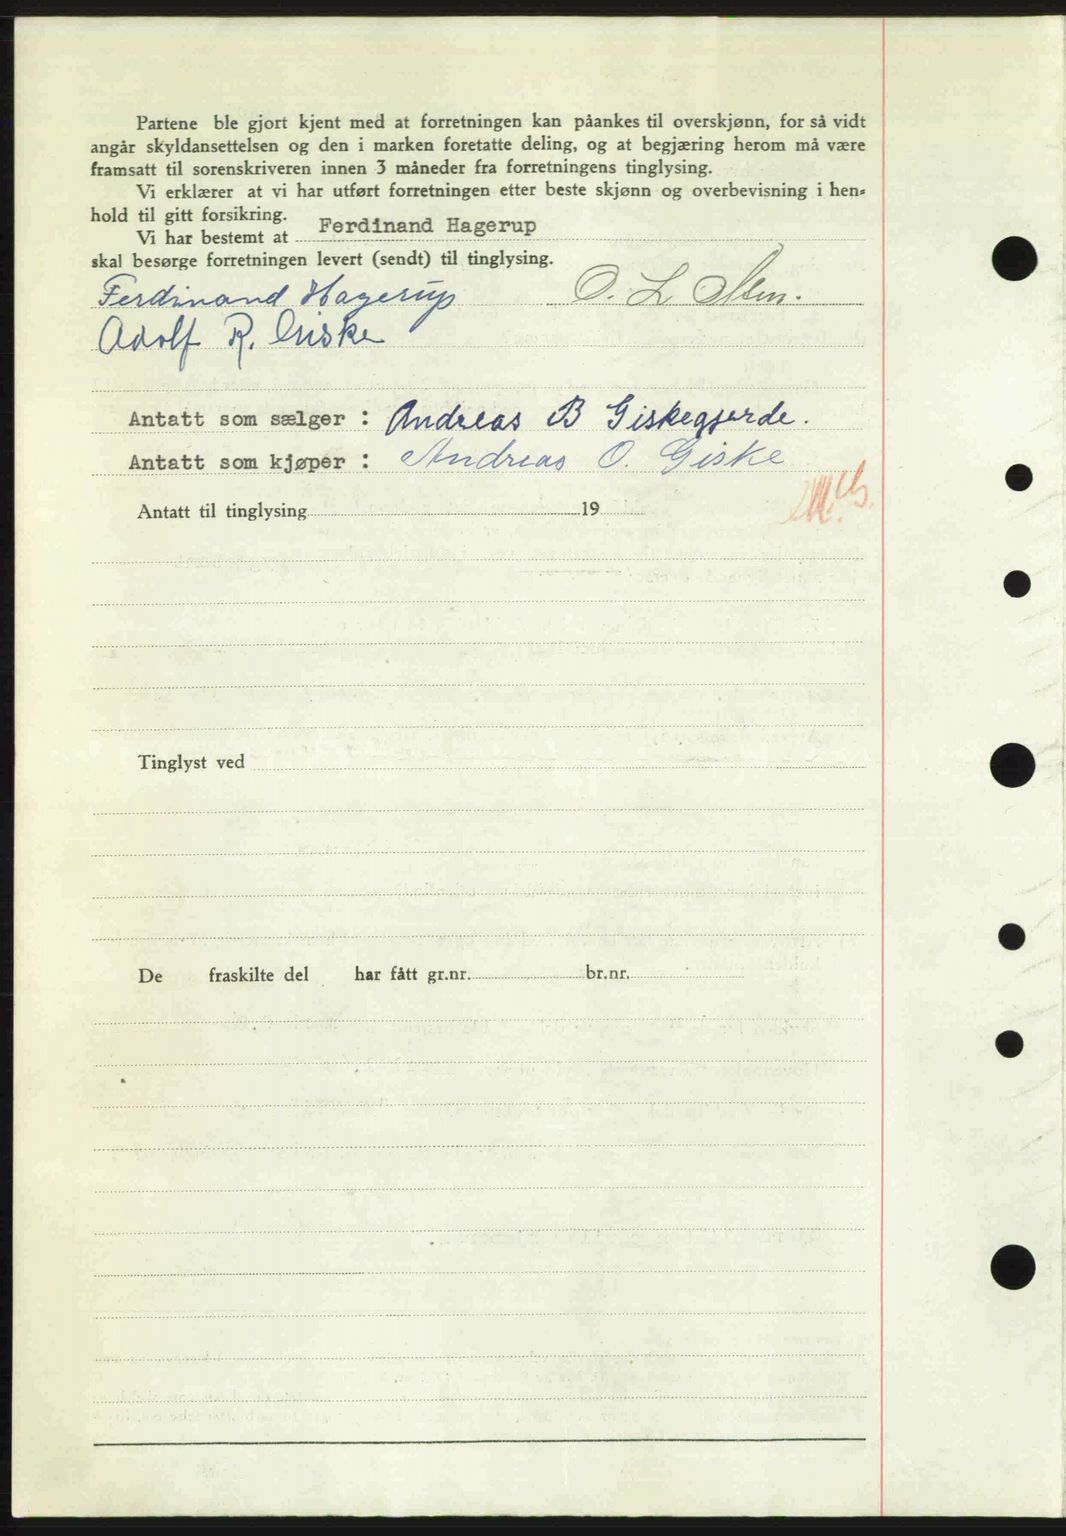 Partene ble gjort kjent med at forretningen kan påankes til overskjønn, for så vidt
angår skyldansettelsen og den i marken foretatte deling, og at begjæring herom må være
framsatt til sorenskriveren innen 3 måneder fra forretningens tinglysing.
Vi erklærer at vi har utført forretningen etter beste skjønn og overbevisning i hen-
hold til gitt forsikring.
Vi har bestemt at Ferdinand Hagerup
skal besørge forretningen levert (sendt) til tinglysing.
Ferdinand Hagerup O. L.
Adolf R. Giske
Antatt som sælger : Andreas B Giskegjerde.
Antatt som kjøper : Andreas O. Giske
Antatt til tinglysing 19
Tinglyst ved
De fraskilte del har fått gr.nr. br.nr.